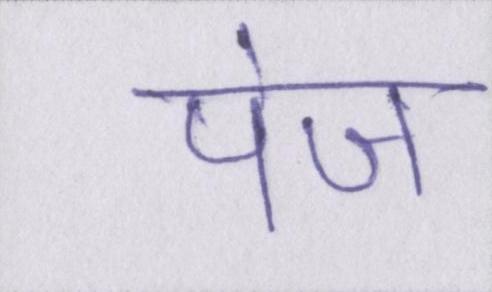 पंज